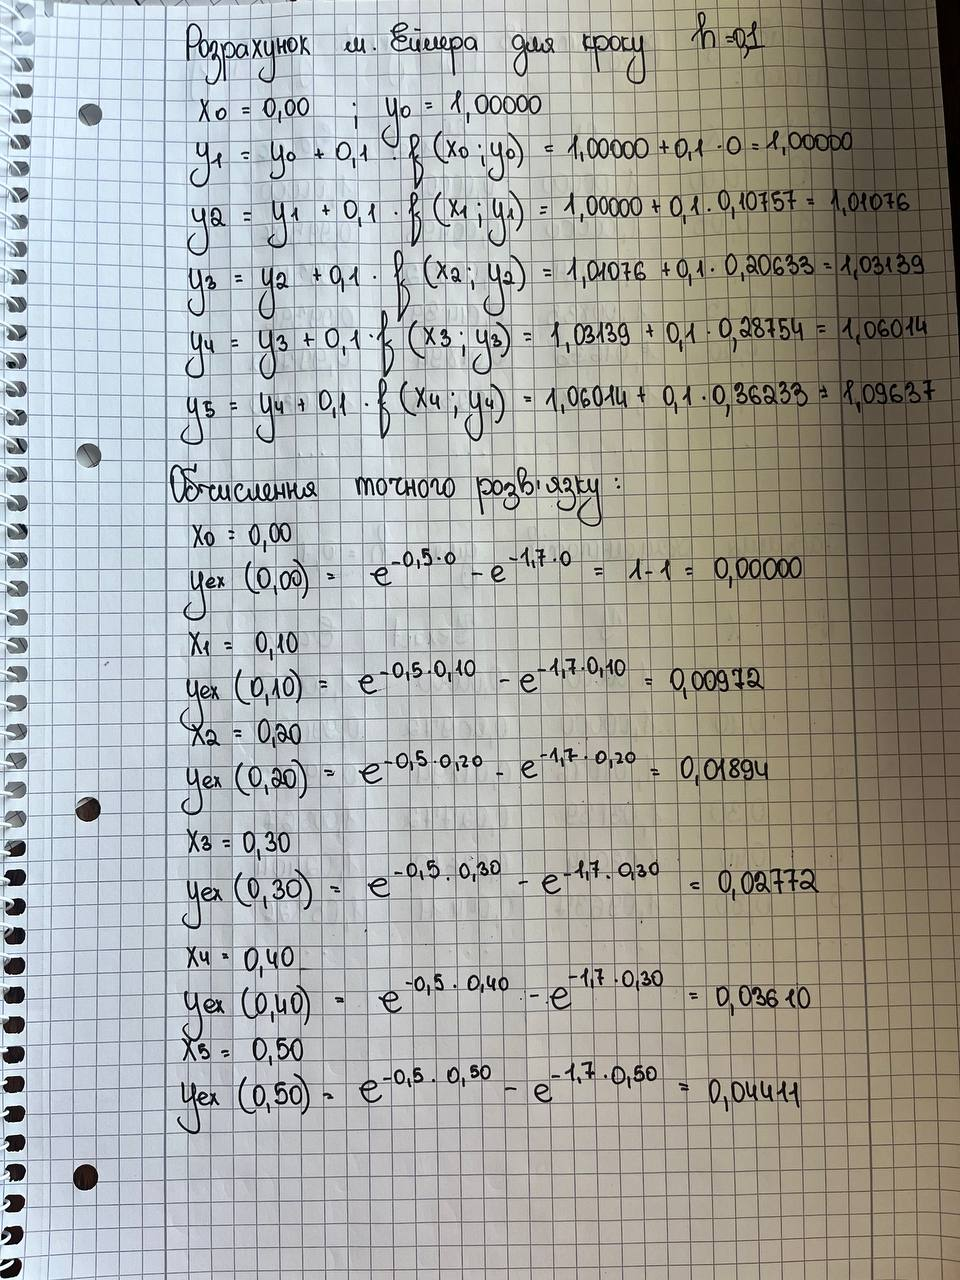 Розрахунок м. Ейлера для кроку h=0,1
x0 = 0,00 ; y0 = 1,00000
y1 = y0 + 0,1 · f (x0 ; y0) = 1,00000 + 0,1 · 0 = 1,00000
y2 = y1 + 0,1 · f (x1 ; y1) = 1,00000 + 0,1 · 0,10757 = 1,01076
y3 = y2 + 0,1 · f (x2 ; y2) = 1,01076 + 0,1 · 0,20633 = 1,03139
y4 = y3 + 0,1 · f (x3 ; y3) = 1,03139 + 0,1 · 0,28754 = 1,06014
y5 = y4 + 0,1 · f (x4 ; y4) = 1,06014 + 0,1 · 0,36233 = 1,09637
Обчислення точного розв'язку:
x0 = 0,00
yex (0,00) = e^-0,5·0 - e^-1,7·0 = 1-1 = 0,00000
x1 = 0,10
yex (0,10) = e^-0,5·0,10 - e^-1,7·0,10 = 0,00972
x2 = 0,20
yex (0,20) = e^-0,5·0,20 - e^-1,7·0,20 = 0,01894
x3 = 0,30
yex (0,30) = e^-0,5·0,30 - e^-1,7·0,30 = 0,02772
x4 = 0,40
yex (0,40) = e^-0,5·0,40 - e^-1,7·0,30 = 0,03610
x5 = 0,50
yex (0,50) = e^-0,5·0,50 - e^-1,7·0,50 = 0,04411